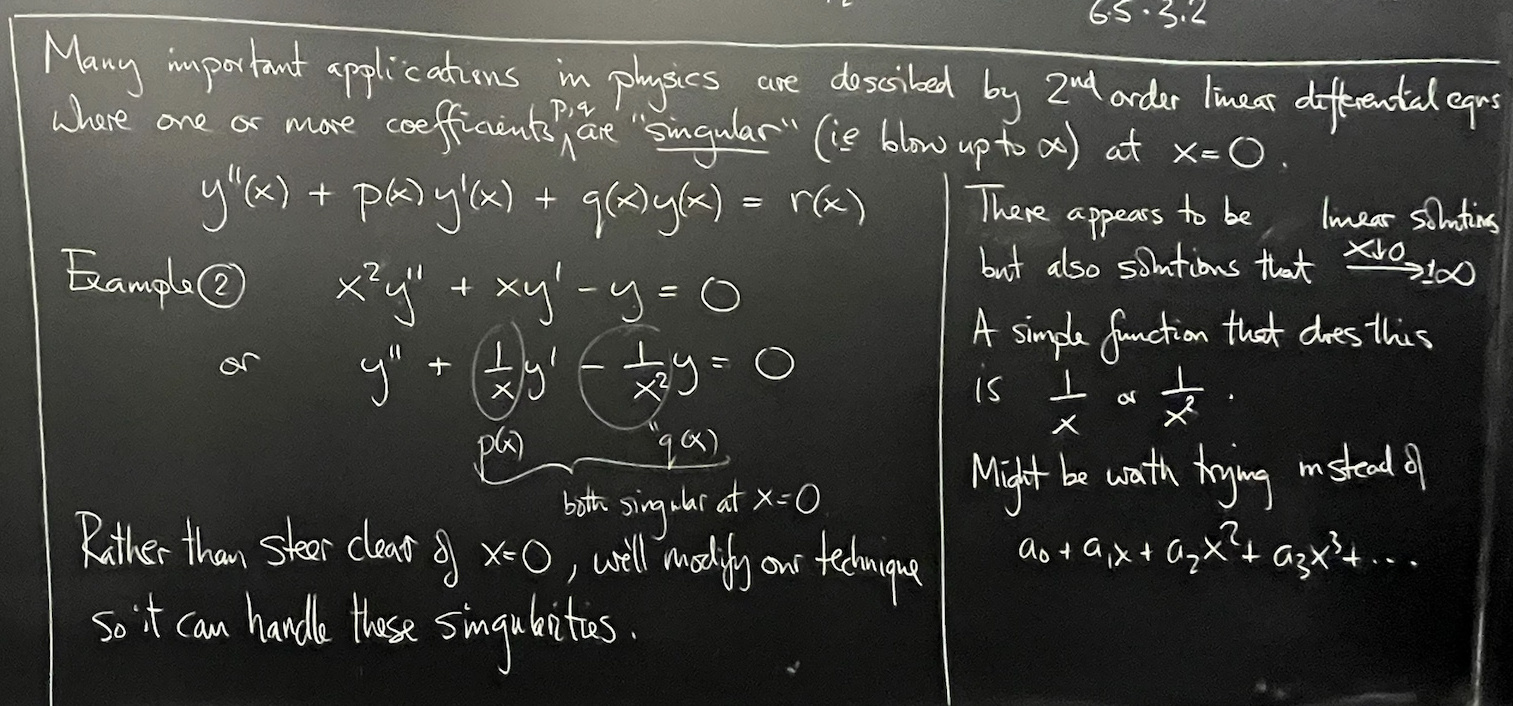 6.5.3.2
Many important applications in physics are described by 2nd order linear differential eqns
where one or more coefficients p,q are "singular" (ie blow up to ∞) at x=0.
y''(x) + p(x)y'(x) + q(x)y(x) = r(x)
Example ② x²y'' + xy' - y = 0
or y'' + 1/x y' - 1/x² y = 0
p(x) "q(x)
both singular at x=0
Rather than steer clear of x=0, we'll modify our technique
so it can handle these singularities.
There appears to be linear solutions
but also solutions that x↓0 → ±∞
A simple function that does this
is 1/x or 1/x².
Might be worth trying instead of
a₀ + a₁x + a₂x² + a₃x³ + ...